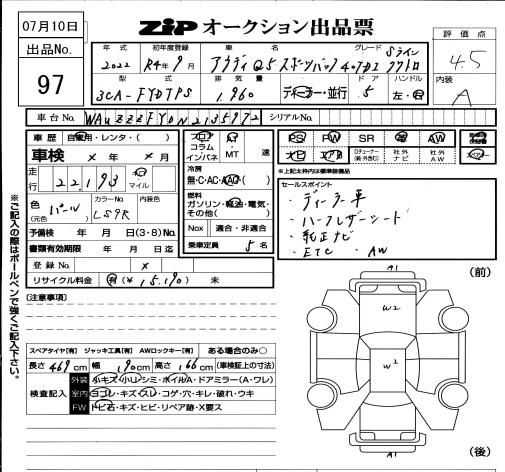 07月10日
ZIP オークション出品票
出品No.
97
評価点
4.5
内装
A
年式 初年度登録 車名 グレード Sライン
2022 R4年9月 アウディ Q5 スポーツバック 40TDI クワトロ
型式 排気量 ドア ハンドル
3CA-FYDTPS 1,960 ディーラー・並行 5 左・右
車台No. シリアルNo.
車歴 自家用・レンタ・( )
車検 × 年 × 月
走行 22,193 キロ マイル
色 (元色) パール カラーNo. LS9R 内装色
予備検 年 月 日(3・8)No.
書類有効期限 年 月 日迄
登録No. ×
リサイクル料金 有(¥ 15,190) 未
フロア コラム インパネ AT MT 速
冷房
無・C・AC・AAC
燃料
ガソリン・軽油・電気・その他( )
Nox 適合・非適合
乗車定員 5 名
PS PW SR 革 AW
ナビ エアB Dチューナー(純・外含む) 社外ナビ 社外AW
※上記太枠内は標準装備品
セールスポイント
・ディーラー車
・ハーフレザーシート
・純正ナビ
・ETC ・AW
[注意事項]
スペアタイヤ[有] ジャッキ工具[有] AWロックキー[有] ある場合のみ○
長さ 469 cm 幅 190 cm 高さ 166 cm (車検証上の寸法)
検査記入
外装 小キズ・小ハンシミ・ホイルA・ドアミラー(A・ワレ)
室内 ヨゴレ・キズ・スレ・コゲ・穴・キレ・破れ・ウキ
FW トビ石・キズ・ヒビ・リペア跡・X要ス
※ご記入の際はボールペンで強くご記入下さい。
A1
(前)
W2
W2
A1
(後)